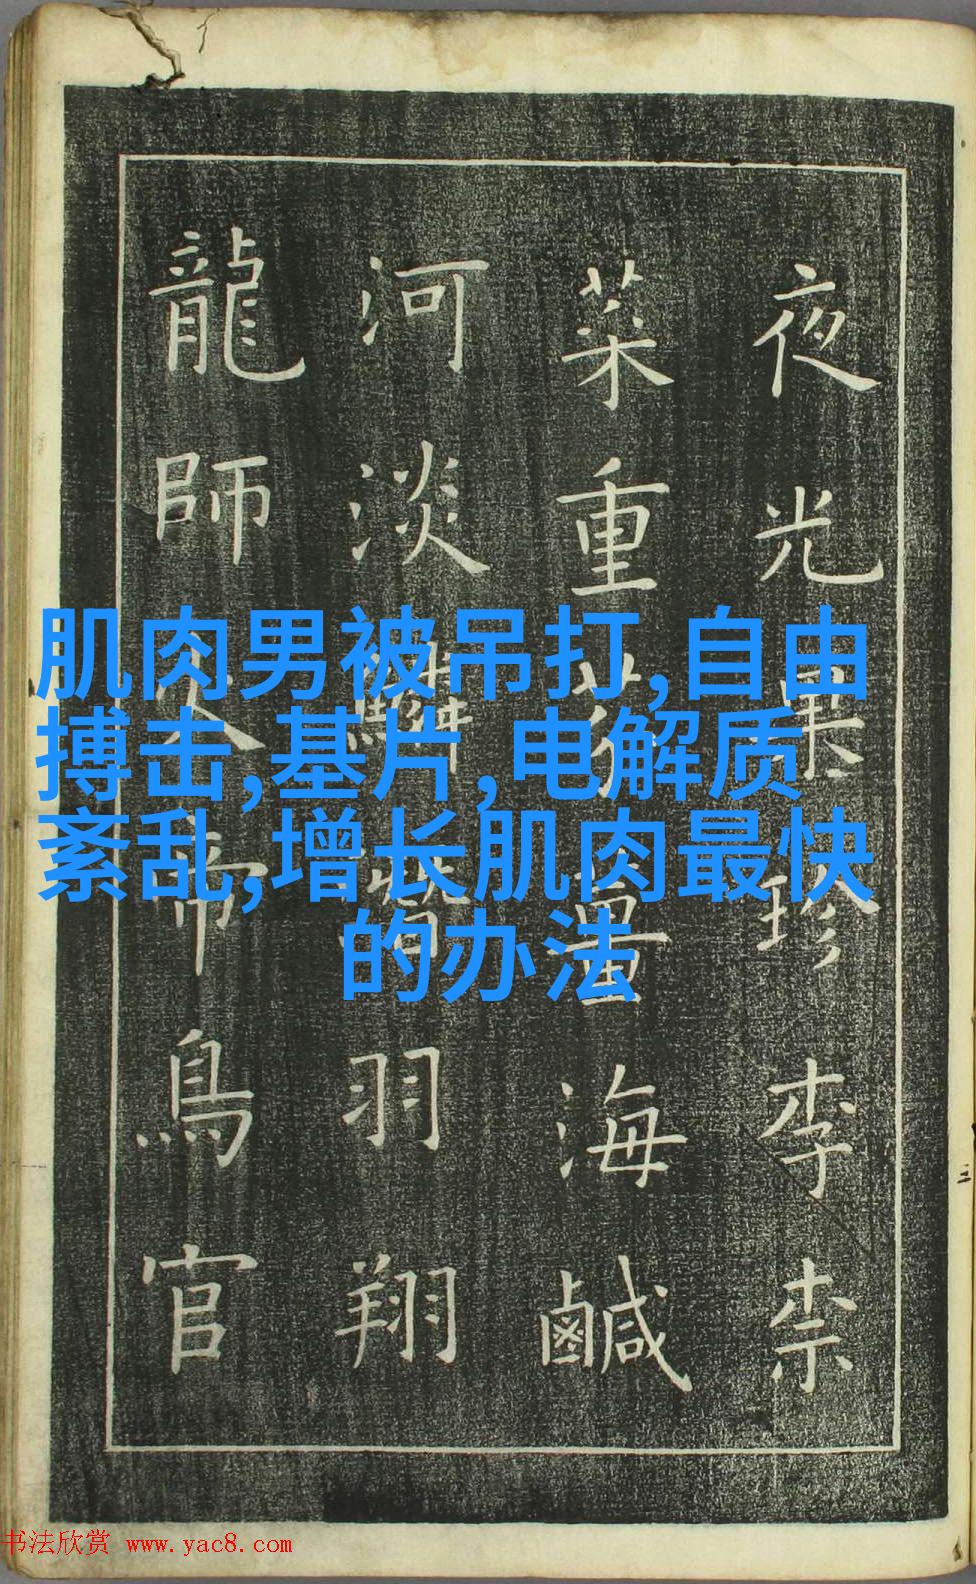 夜光果珍李柰
菜重芥薑海鹹
河淡鱗潛羽翔
龍師火帝鳥官
肌肉男被吊打,自由
搏击,基片,电解质
紊乱,增长肌肉最快
的办法
书法欣赏 www.yac8.com